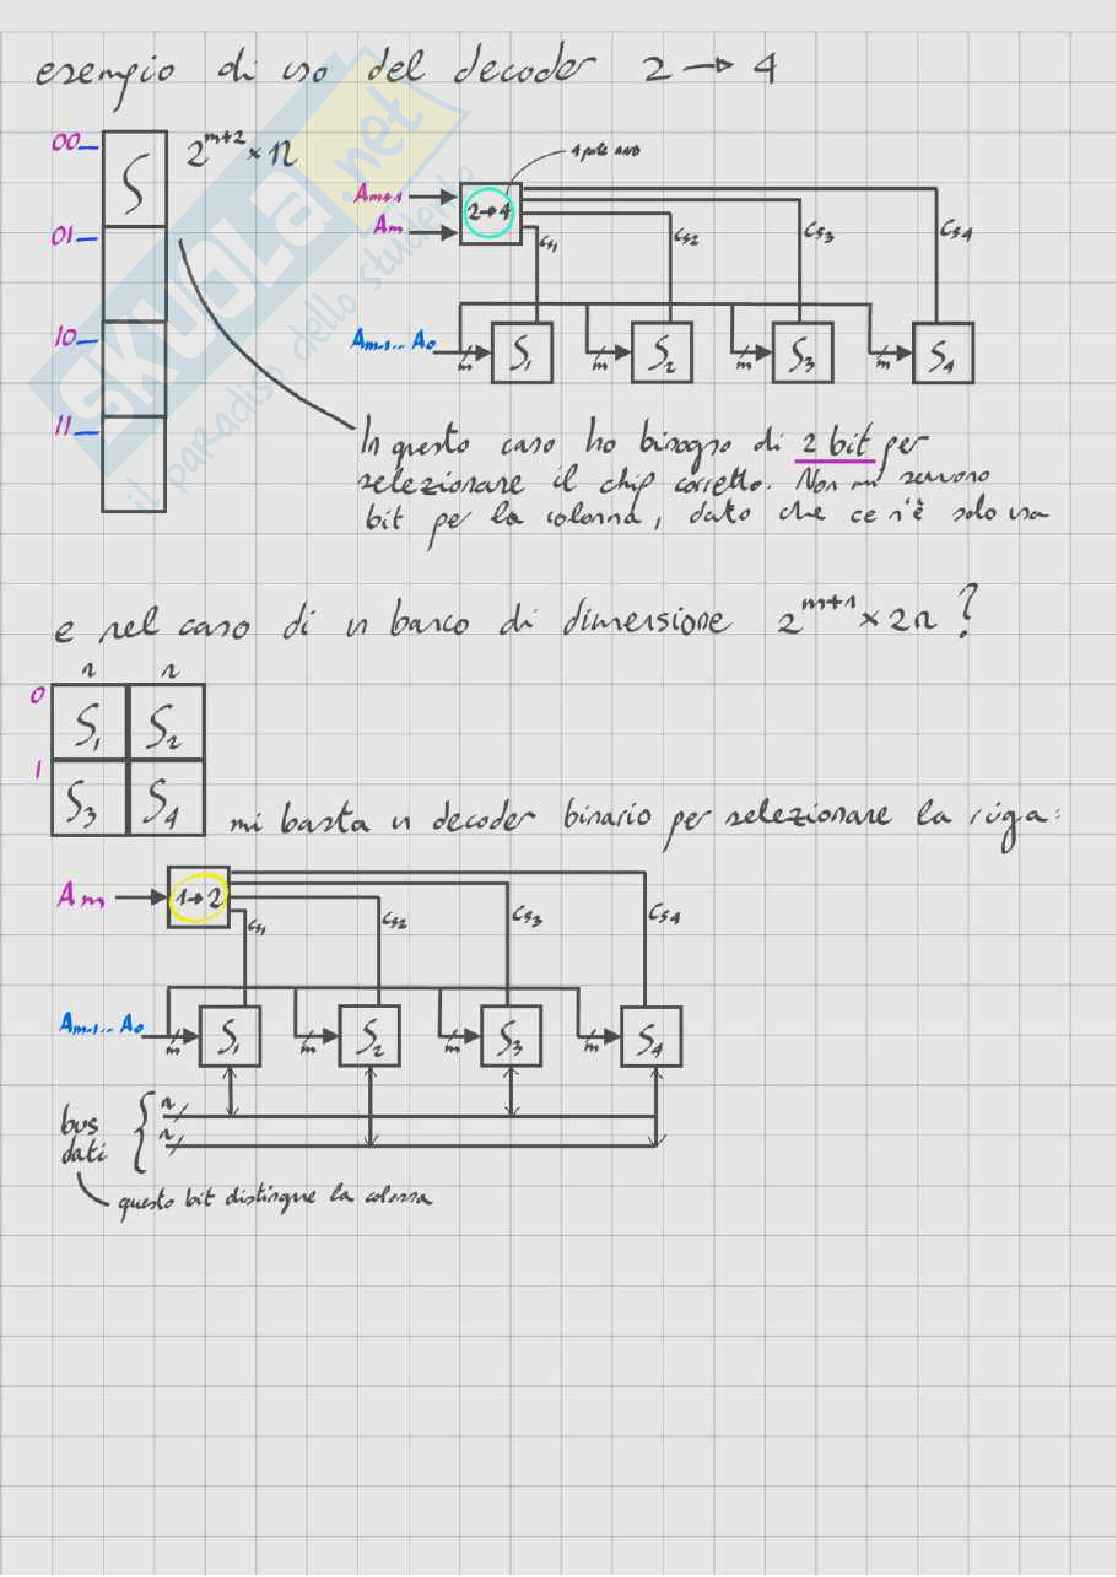 esempio di uso del decoder 2 → 4
00_
S
2^{m+2} × n
01_
10_
11_
A_{m+1}
A_m
2→4
CS1
CS2
CS3
CS4
A_{m-1}... A_0
m
S_1
m
S_2
m
S_3
m
S_4
In questo caso ho bisogno di 2 bit per
selezionare il chip corretto. Non mi servono
bit per la colonna, dato che ce n'è solo una
e nel caso di un banco di dimensione 2^{m+1} × 2n ?
n n
0
S_1 S_2
1
S_3 S_4
mi basta un decoder binario per selezionare la riga:
A_m
1→2
CS1
CS2
CS3
CS4
A_{m-1}... A_0
m
S_1
m
S_2
m
S_3
m
S_4
bus
dati
n
n
questo bit distingue la colonna
SKUOLA.net
il paradiso dello studente